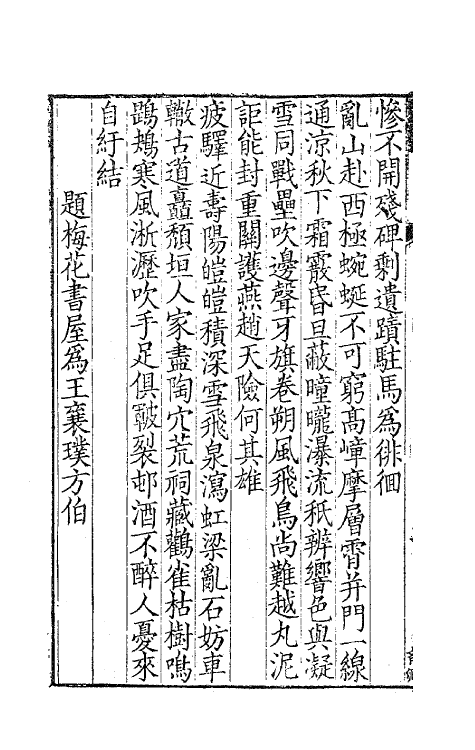 慘不開殘碑剩遺蹟駐馬為徘徊
亂山赴西極蜿蜒不可窮高嶂摩層霄并門一線
通涼秋下霜霰昏旦蔽曈曨瀑流秖辨響色與凝
雪同戰壘吹邊聲牙旗卷朔風飛鳥尚難越丸泥
詎能封重關護燕趙天險何其雄
疲驛近壽陽皚皚積深雪飛泉瀉虹梁亂石妨車
轍古道矗頹垣人家盡陶穴荒祠藏鸛雀枯樹鳴
鵾鴂寒風淅瀝吹手足俱皸裂邨酒不醉人憂來
自紆結
題梅花書屋為王襄璞方伯